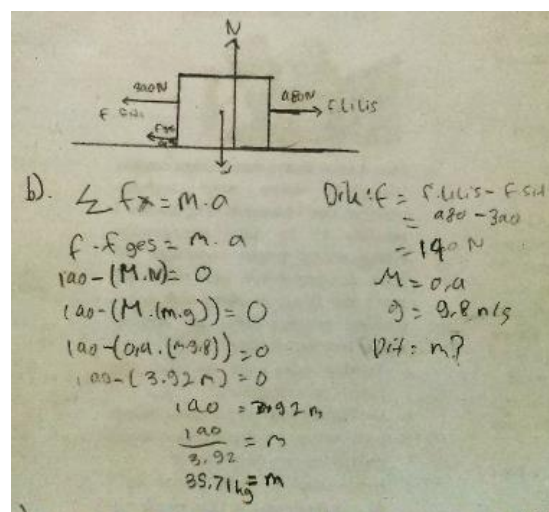 N
340N
480N
F. Siti
F.Lilis
Fges
W
b). Σ Fx = m.a
F - F ges = m.a
140 - (M.N) = 0
140 - (M.(m.g)) = 0
140 - (0,4.(m.9.8)) = 0
140 - (3.92 m) = 0
140 = 3.92 m
140 / 3.92 = m
35,71 kg = m
Dik : F = F.Lilis - F Siti
= 480 - 340
= 140 N
M = 0,4
g = 9,8 m/s
Dit : m?